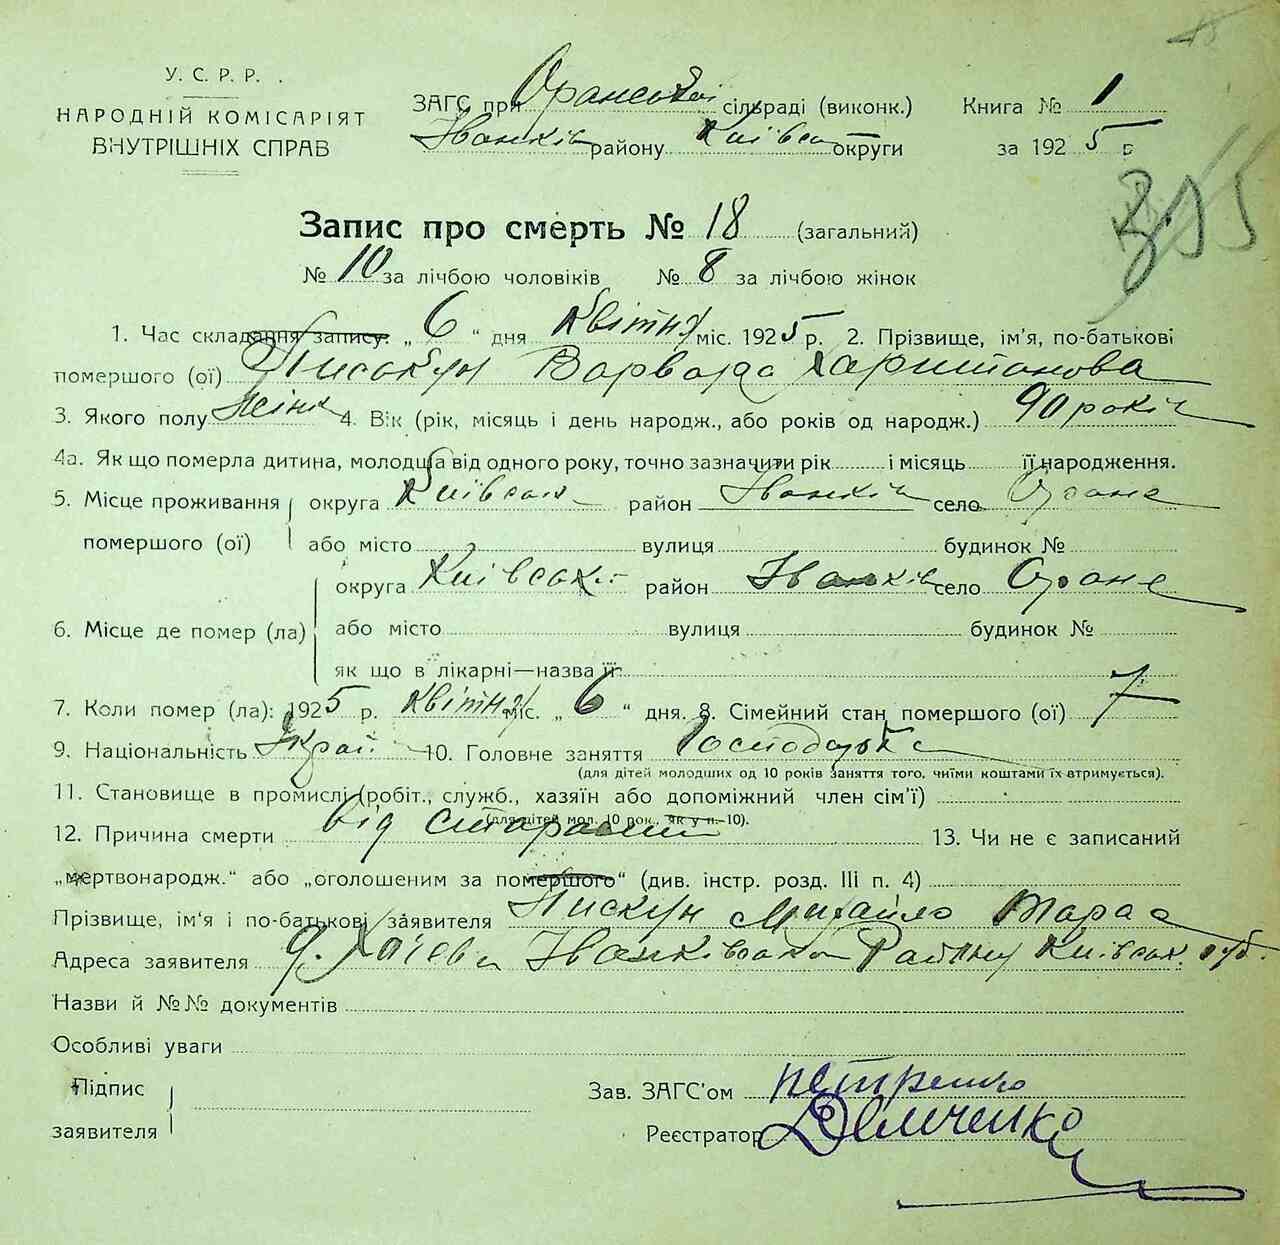 У. С. Р. Р.
НАРОДНІЙ КОМІСАРІЯТ
ВНУТРІШНІХ СПРАВ
ЗАГС при Оранській сільраді (виконк.)
Іванків району Київськ округи
Книга № 1
за 1925 р
Запис про смерть № 18 (загальний)
№ 10 за лічбою чоловіків № 8 за лічбою жінок
1. Час складання запису: „ 6 “ дня Квітня міс. 1925 р. 2. Прізвище, ім'я, по-батькові
помершого (ої) Пискун Варвара Харитонова
3. Якого полу Жіноч 4. Вік (рік, місяць і день народж., або років од народж.) 90 років
4а. Як що померла дитина, молодша від одного року, точно зазначити рік і місяць її народження.
5. Місце проживання округа Київська район Іванків село Оране
помершого (ої) або місто вулиця будинок №
округа Київська район Іванків село Оране
6. Місце де помер (ла) або місто вулиця будинок №
як що в лікарні—назва її:
7. Коли помер (ла): 1925 р. Квітня міс. „ 6 “ дня. 8. Сімейний стан помершого (ої)
9. Національність Україн 10. Головне заняття Господарка
(для дітей молодших од 10 років заняття того, чиїми коштами їх втримується).
11. Становище в промислі (робіт., служб., хазяїн або допоміжний член сім'ї)
(для дітей мол. 10 рок., як у п. 10).
12. Причина смерти від старости 13. Чи не є записаний
„мертвонародж.“ або „оголошеним за помершого“ (див. інстр. розд. III п. 4)
Прізвище, ім'я і по-батькові заявителя Пискун Михайло Тарас
Адреса заявителя Іванківського Району Київськ. губ.
Назви й №№ документів
Особливі уваги
Підпис
заявителя
Зав. ЗАГС'ом Петренко
Реєстратор Демченко